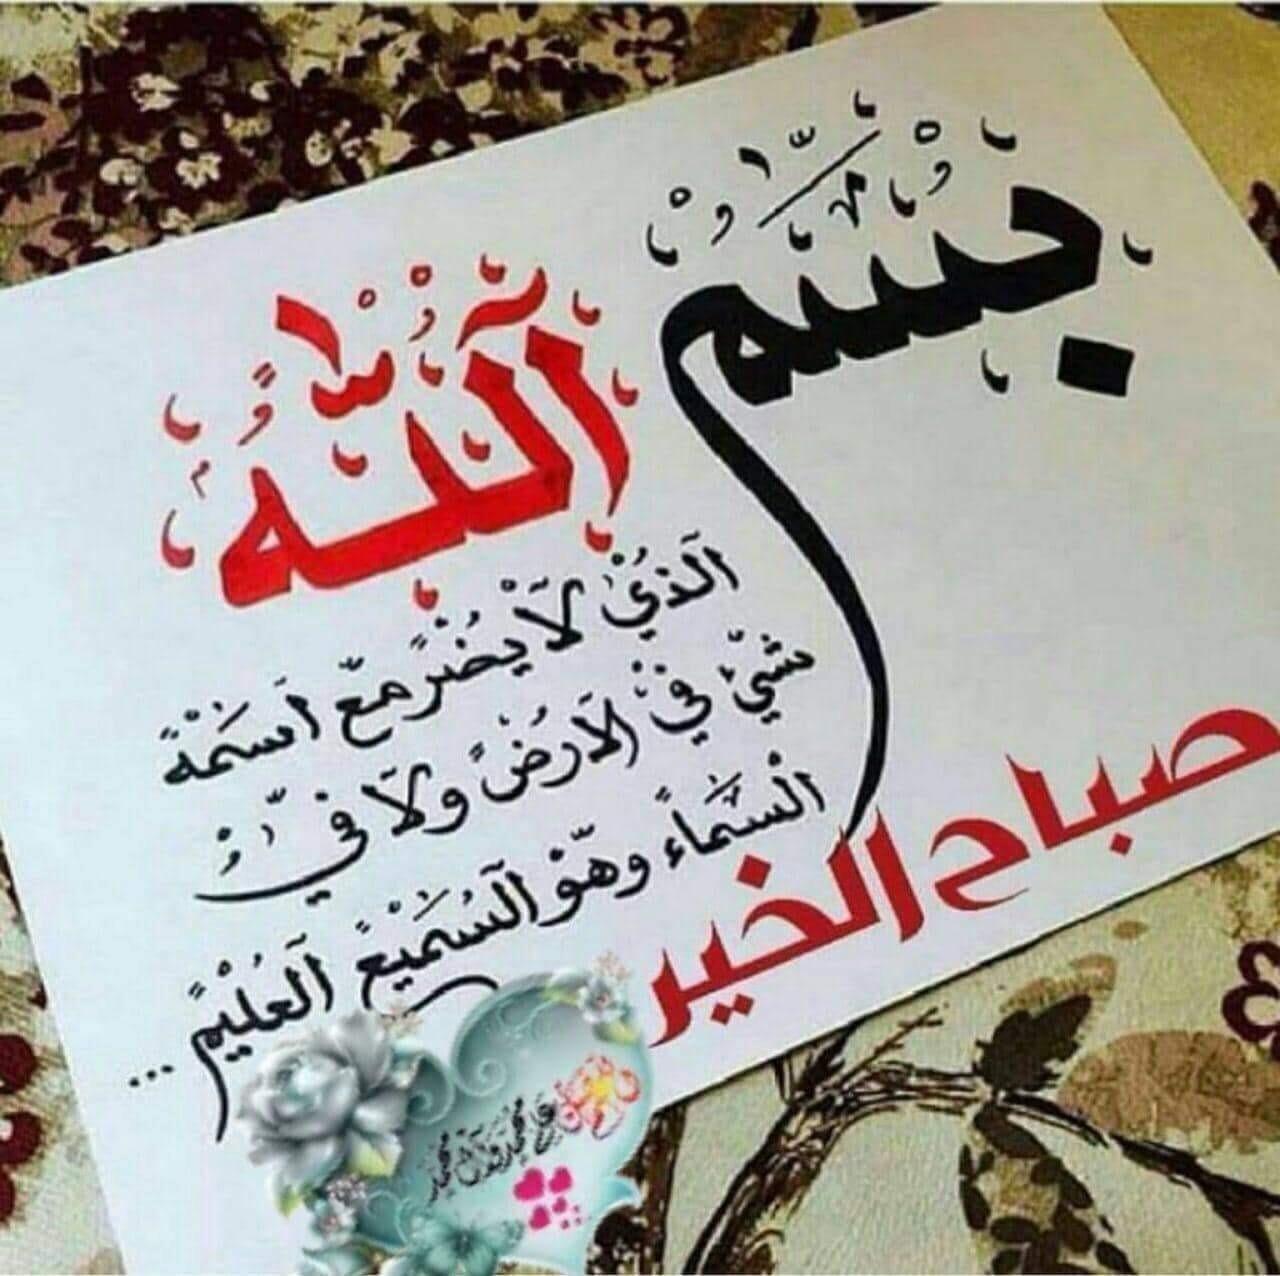 بسم
الله
الذي لا يضر مع اسمه
شيء في الارض ولا في
السماء وهو السميع العليم...
صباح الخير